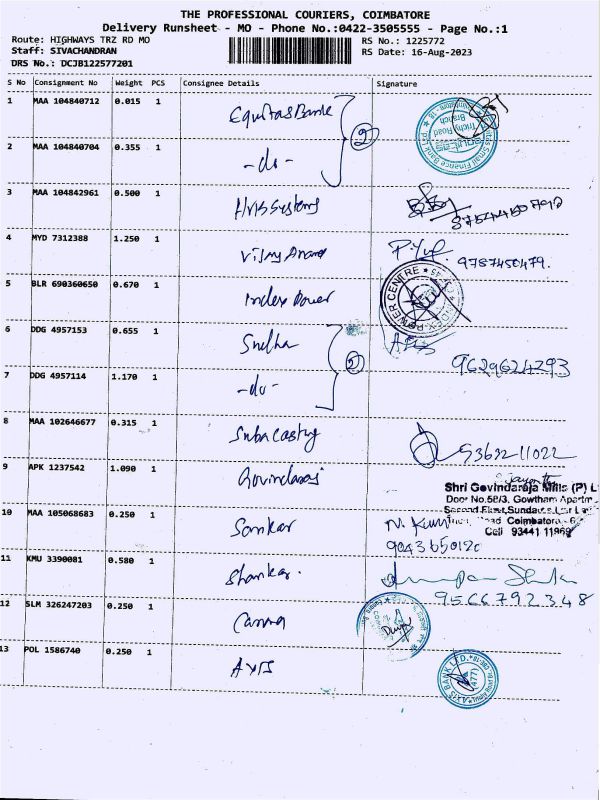 THE PROFESSIONAL COURIERS, COIMBATORE
Delivery Runsheet - MO - Phone No.:0422-3505555 - Page No.:1
Route: HIGHWAYS TRZ RD MO RS No.: 1225772
Staff: SIVACHANDRAN RS Date: 16-Aug-2023
DRS No.: DCJB122577201
S No Consignment No Weight PCS Consignee Details Signature
1 MAA 104840712 0.015 1 Equitas Bank
2 MAA 104840704 0.355 1 -do- 2
3 MAA 104842961 0.500 1
4 MYD 7312388 1.250 1 Vijay Anand 9787450479.
5 BLR 690360650 0.670 1 Index Power
POWER CENTRE
6 DDG 4957153 0.655 1 Snelha
7 DDG 4957114 1.170 1 -do- 2 9629624293
8 MAA 102646677 0.315 1 Suba Casting 9363211022
9 APK 1237542 1.090 1 Govindaraj
Shri Govindaraja Mills (P) L
Door No.58/3, Gowtham Apartm
Coimbatore
Cell 93441 11969
10 MAA 105068683 0.250 1 Sankar N. Kum
9043650120
11 KMU 3390081 0.580 1 Shankar.
9566792348
12 SLM 326247203 0.250 1 Canara
13 POL 1586740 0.250 1 AXIS
AXIS BANK LTD.